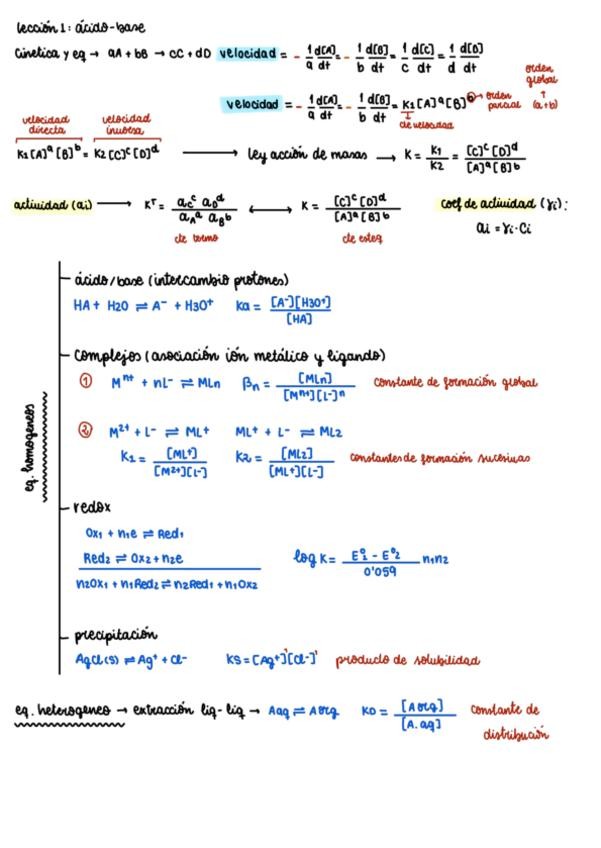 lección 1: ácido-base
Cinetica y eq → aA + bB → cC + dD velocidad = - 1/a d[A]/dt = - 1/b d[B]/dt = 1/c d[C]/dt = 1/d d[D]/dt
velocidad = - 1/a d[A]/dt = - 1/b d[B]/dt = K1[A]^a[B]^b → orden parcial
orden global
↑
(a+b)
cte velocidad
velocidad directa velocidad inversa
K1[A]^a[B]^b = K2[C]^c[D]^d → ley acción de masas → K = K1/K2 = [C]^c[D]^d/[A]^a[B]^b
actividad (ai) → K^T = aC^c aD^d/aA^a aB^b ↔ K = [C]^c[D]^d/[A]^a[B]^b coef de actividad (γi):
cte termo cte esteq ai = γi·Ci
eq. homogeneos
ácido/base (intercambio protones)
HA + H2O ⇌ A⁻ + H3O⁺ Ka = [A⁻][H3O⁺]/[HA]
complejos (asociación ión metálico y ligando)
① M^n+ + nL⁻ ⇌ MLn βn = [MLn]/[M^n+][L⁻]^n constante de formación global
② M²⁺ + L⁻ ⇌ ML⁺ ML⁺ + L⁻ ⇌ ML2
K1 = [ML⁺]/[M²⁺][L⁻] K2 = [ML2]/[ML⁺][L⁻] constantes de formación sucesivas
redox
Ox1 + n1e ⇌ Red1
Red2 ⇌ Ox2 + n2e log K = E°1 - E°2/0'059 n1n2
n2Ox1 + n1Red2 ⇌ n2Red1 + n1Ox2
precipitación
AgCl(s) ⇌ Ag⁺ + Cl⁻ KS = [Ag⁺]¹[Cl⁻]¹ producto de solubilidad
eq. heterogeneo → extracción liq-liq → Aaq ⇌ Aorg KD = [Aorg]/[A.aq] constante de
distribución